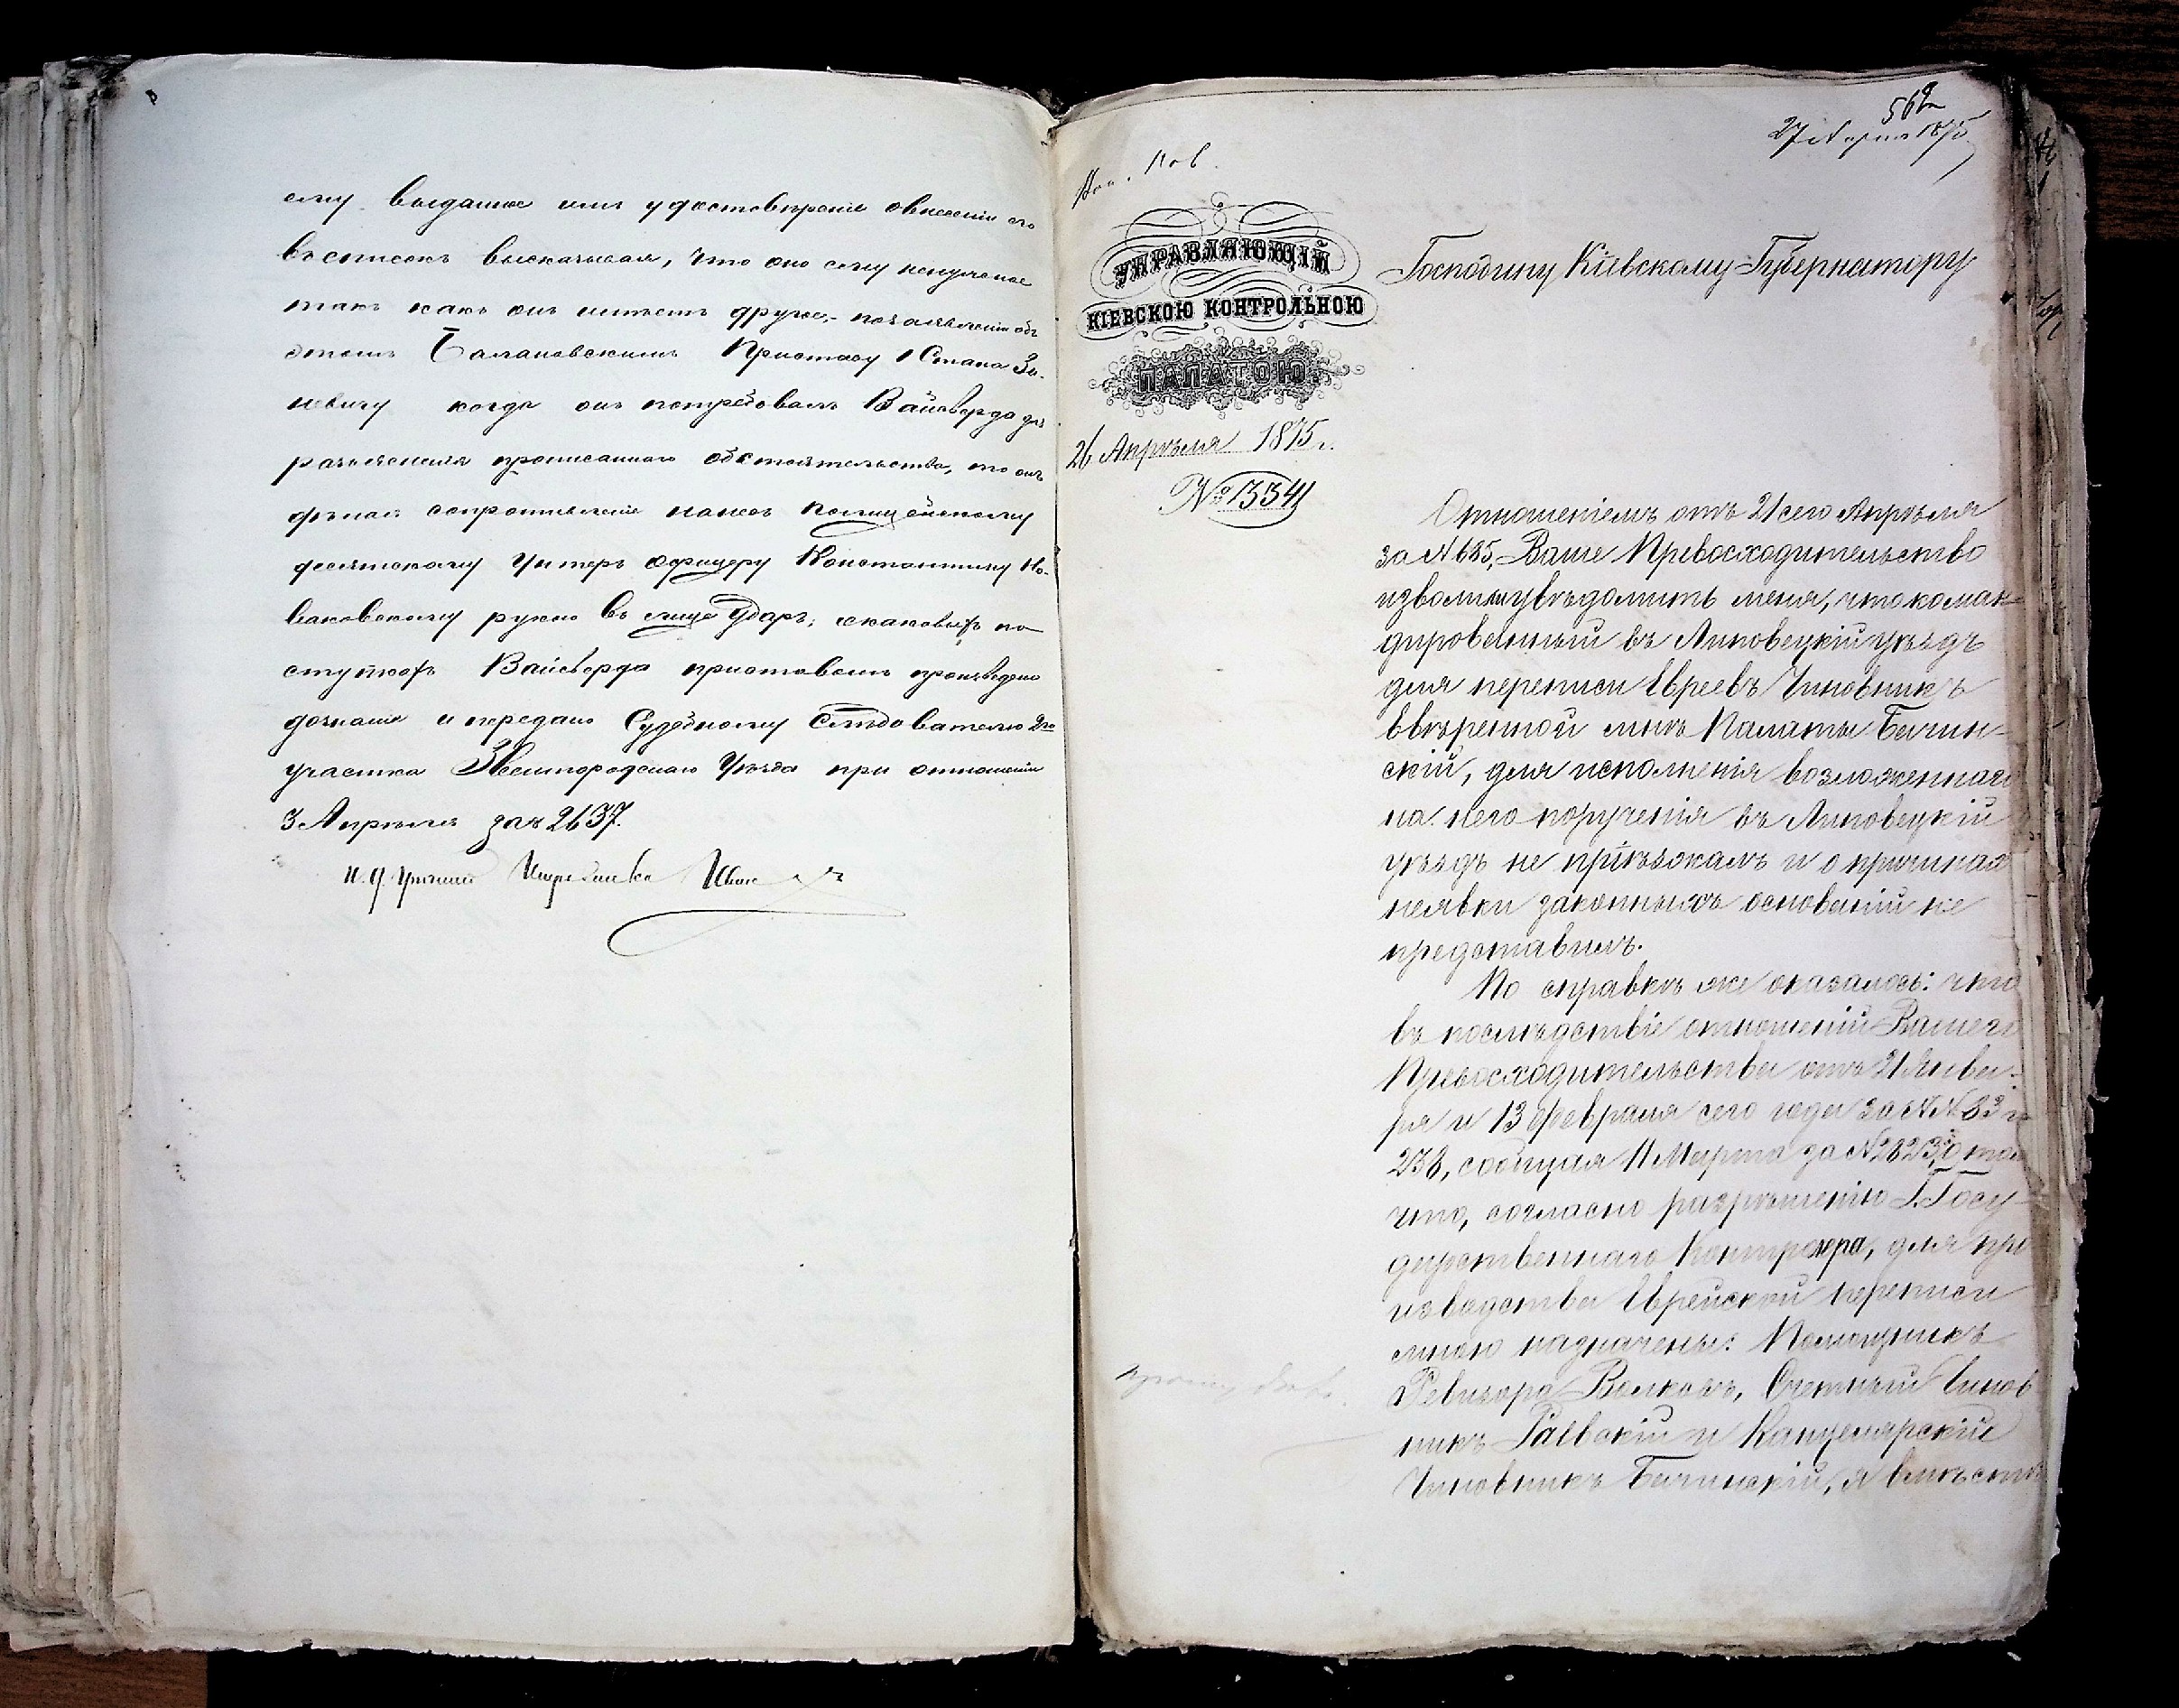 ему выданное имъ удостовѣреніе овнесеніи его
въ списокъ высказывая, что оно ему ненужное
такъ какъ онъ имѣетъ другое, – позаявленіи объ
этомъ Балановскимъ Приставу 1 Стана
когда онъ потребовалъ Вайсборда для
разъясненія прописаннаго обстоятельства, то онъ
дѣлалъ сопротивленіе нанеся Полицейскому
десятскому Унтеръ офицеру Константину Но-
ваковскому рукою въ лице ударъ; окаковыхъ по-
ступкахъ Вайсборда приставомъ произведено
дознаніе и передано Судебному Слѣдователю 2го
участка Звенигородскаго Уѣзда при отношеніи
3 Апрѣля за № 2637.
И. д.
562
27 Апрѣля 1875
УПРАВЛЯЮЩІЙ
КІЕВСКОЮ КОНТРОЛЬНОЮ
ПАЛАТОЮ.
26 Апрѣля 1875 г.
№ 13341
Господину Кіевскому Губернатору
Отношеніемъ отъ 21 сего Апрѣля
за № 685, Ваше Превосходительство
изволили увѣдомить меня, что коман-
дированный въ Липовецкій уѣздъ
для переписи Евреевъ Чиновникъ
ввѣренной мнѣ Палаты Бачин-
скій, для исполненія возложеннаго
на него порученія въ Липовецкій
уѣздъ не пріѣзжалъ и о причинах
неявки законныхъ основаній не
представилъ.
По справкѣ же оказалось: что
въ послѣдствіе отношеній Вашего
Превосходительства отъ 21 Янва-
ря и 13 Февраля сего года за №№ 83 и
238, сообщая 11 Марта за № 2823, о том
что, согласно разрѣшенію Г. Госу-
дарственнаго Контролера, для про
изводства Еврейской переписи
мною назначены: Помощникъ
Ревизора Волковъ, Счетный Чинов
никъ Раевскій и Канцелярскій
Чиновникъ Бачинскій, я вмѣстѣ